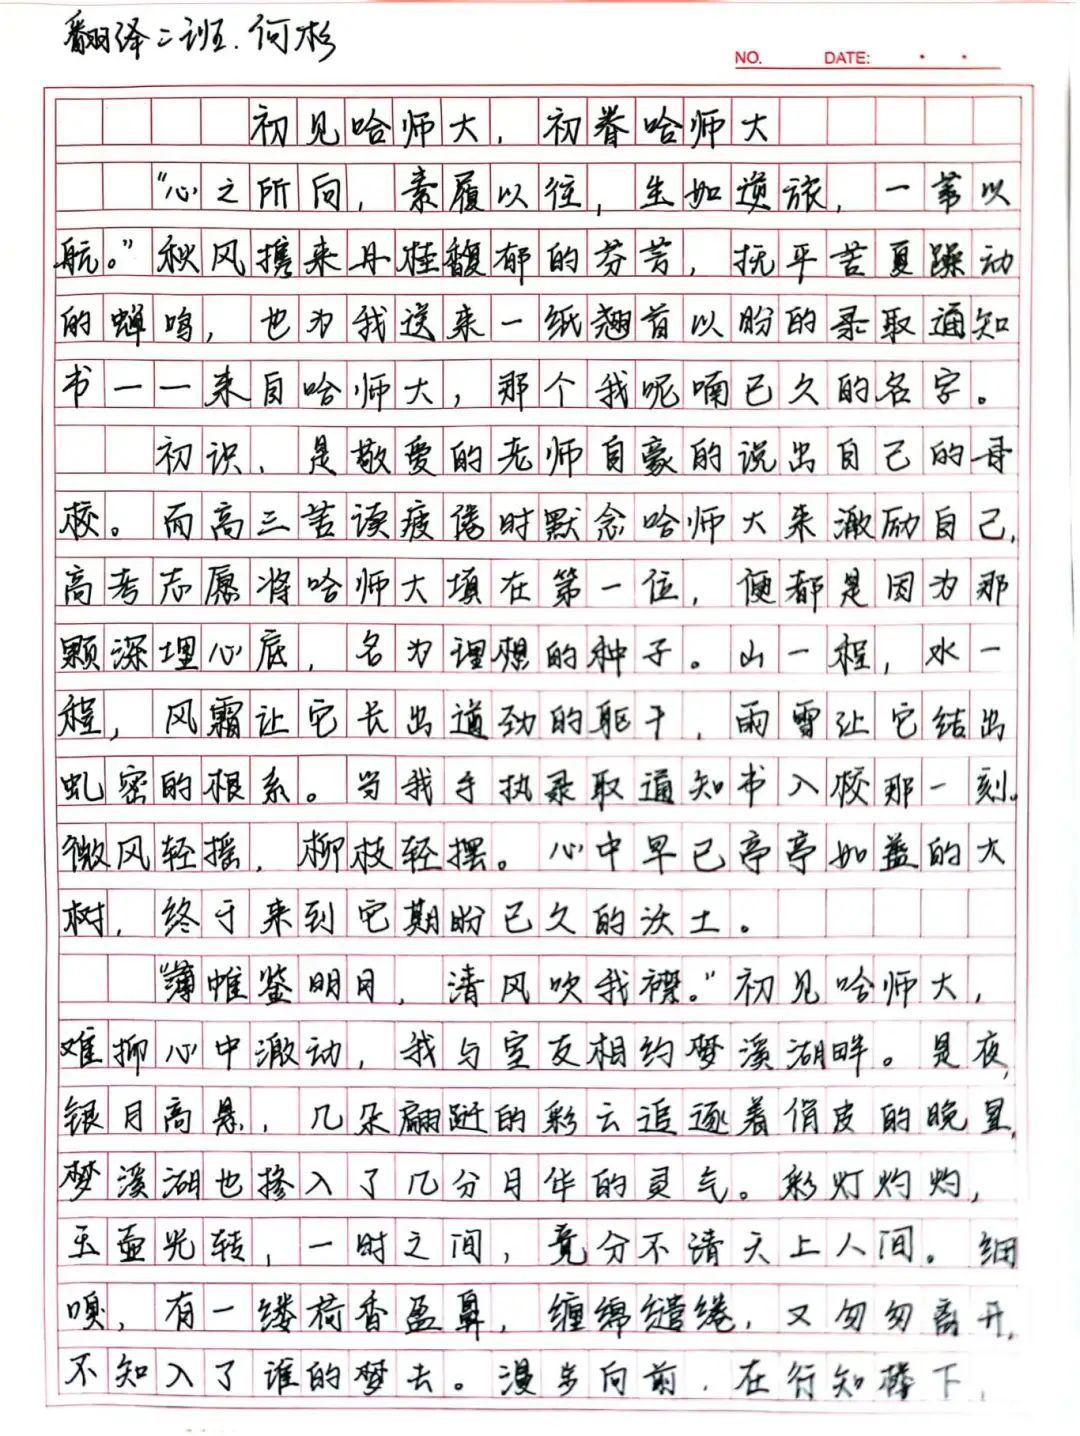 翻译二班.何杉
NO.    DATE:
初见哈师大，初眷哈师大
“心之所向，素履以往，生如逆旅，一苇以
航。”秋风携来丹桂馥郁的芬芳，抚平苦夏躁动
的蝉鸣，也为我送来一纸翘首以盼的录取通知
书——来自哈师大，那个我呢喃已久的名字。
初识，是敬爱的老师自豪的说出自己的母
校。而高三苦读疲倦时默念哈师大来激励自己，
高考志愿将哈师大填在第一位，便都是因为那
颗深埋心底，名为理想的种子。山一程，水一
程，风霜让它长出遒劲的躯干，雨雪让它结出
虬密的根系。当我手执录取通知书入校那一刻。
微风轻摇，柳枝轻摆。心中早已亭亭如盖的大
树，终于来到它期盼已久的沃土。
“薄帷鉴明月，清风吹我襟。”初见哈师大，
难抑心中激动，我与室友相约梦溪湖畔。是夜，
银月高悬，几朵翩跹的彩云追逐着俏皮的晚星，
梦溪湖也掺入了几分月华的灵气。彩灯灼灼，
玉壶光转，一时之间，竟分不清天上人间。细
嗅，有一缕荷香盈鼻，缠绵缱绻，又匆匆离开，
不知入了谁的梦去。漫步向前，在行知楼下，